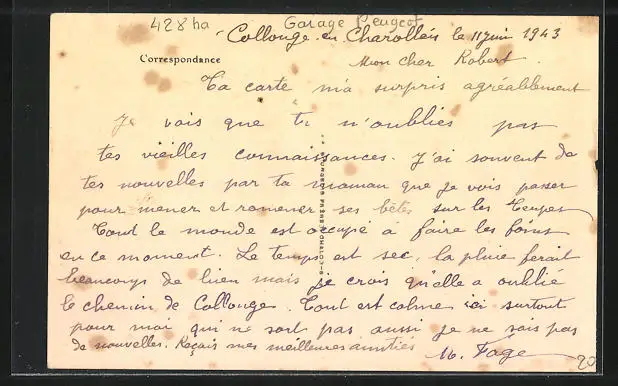 428 ha Garage Peugeot
Collonge en Charollais le 11 juin 1943
Correspondance
Mon cher Robert.
Ta carte m'a surpris agréablement
Je vois que tu n'oublies pas
tes vieilles connaissances. J'ai souvent de
tes nouvelles par ta maman que je vois passer
pour mener et ramener ses bêtes sur les
Tout le monde est occupé à faire les foins
en ce moment. Le temps est sec, la pluie ferait
beaucoup de bien mais je crois qu'elle a oublié
le chemin de Collonge. Tout est calme ici surtout
pour moi qui ne sort pas aussi je ne sais pas
de nouvelles. Reçois mes meilleures amitiés
M. Fage
20